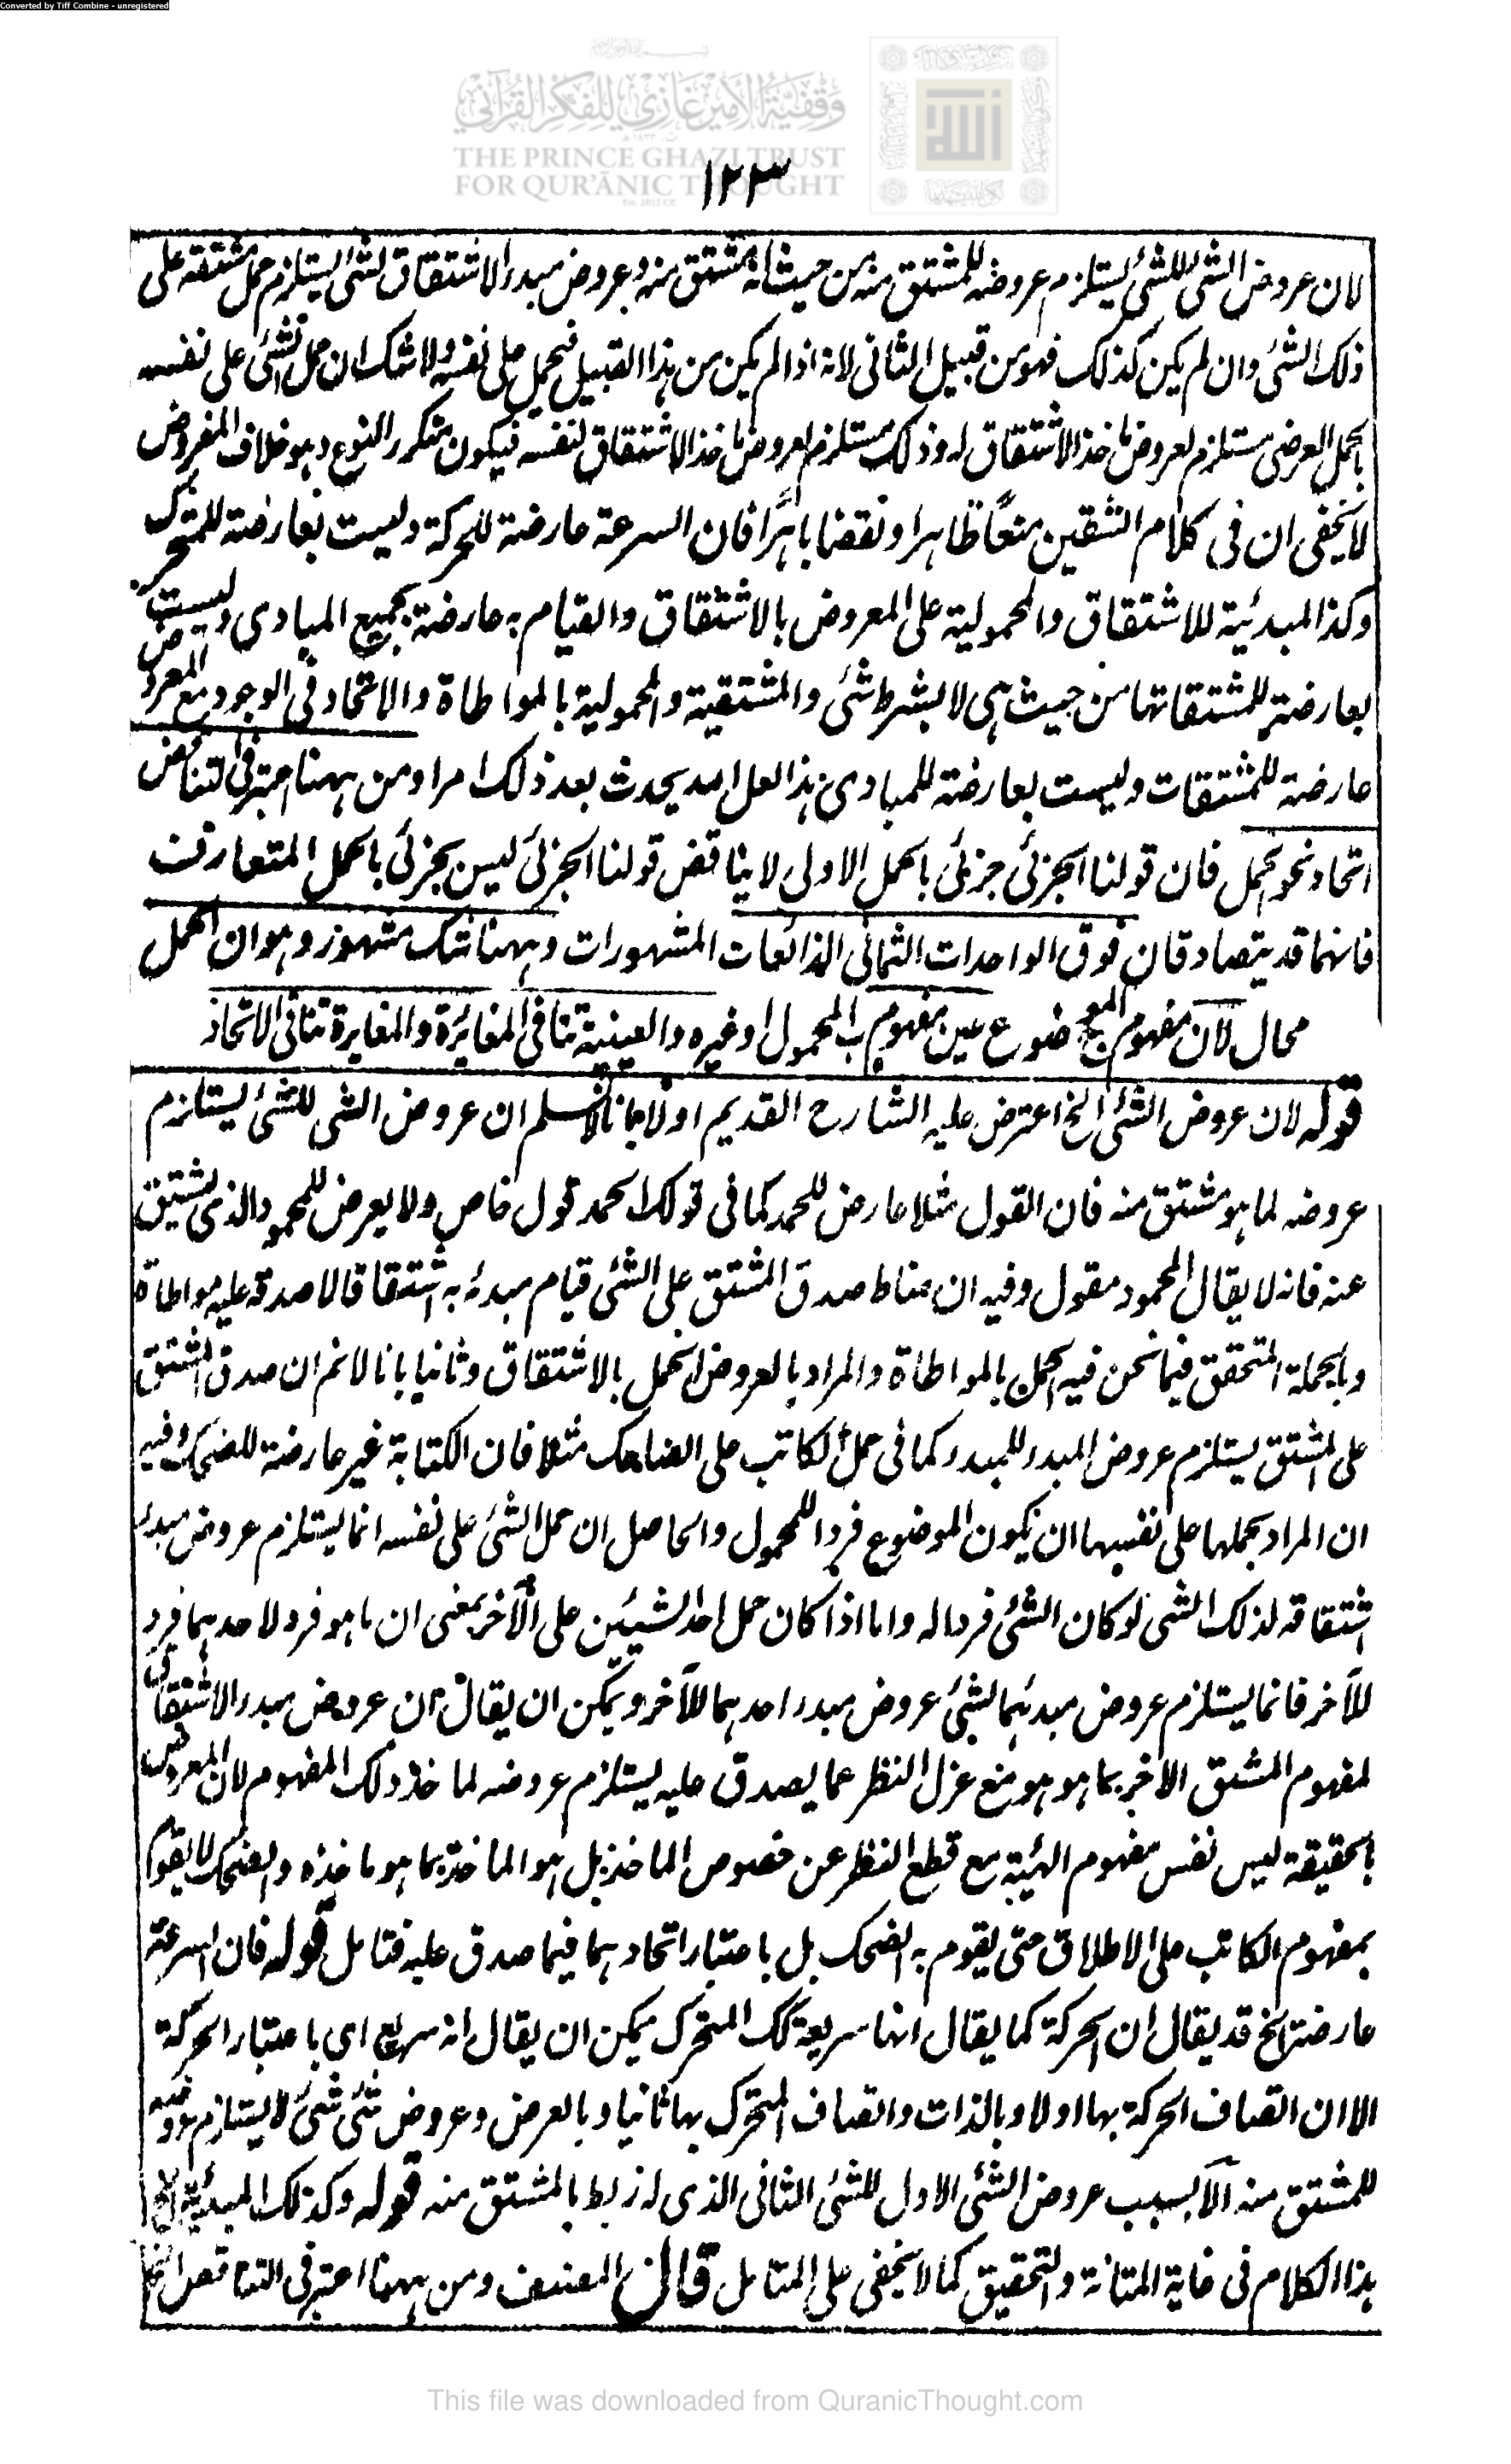 Converted by Tiff Combine - unregistered
وقفية الأمير غازي للفكر القرآني
THE PRINCE GHAZI TRUST
FOR QUR'ĀNIC THOUGHT
١٢٣
لان عروض الشئ للشئ يستلزم عروضه للمشتق منه من حيث انه مشتق منه وعروض مبدء الاشتقاق لشئ يستلزم حمل مشتقه على
ذلك الشئ وان لم يكن كذلك فهو من قبيل الثانى لانه اذا لم يكن من هذا القبيل فيحمل على نفسه ولا شك ان حمل الشئ على نفسه
بالحمل العرضى مستلزم لعروض ماخذ الاشتقاق له وذلك مستلزم لعروض ماخذ الاشتقاق لنفسه فيكون متكرر النوع وهو خلاف المفروض
لا يخفى ان فى كلام الشقين منعًا ظاهرا ونقضا باهرًا فان السرعة عارضة للحركة وليست بعارضة للمتحرك
وكذا المبدئية للاشتقاق والمحمولية على المعروض بالاشتقاق والقيام به عارضة لجميع المبادى وليست
بعارضة للمشتقاتها من حيث هى لا بشرط شئ والمشتقية والمحمولية بالمواطاة والاتحاد فى الوجود مع المعروض
عارضة للمشتقات وليست بعارضة للمبادى هذا لعل الله يحدث بعد ذلك امرا ومن ههنا اعتبر فى التناقض
اتحاد نحو الحمل فان قولنا الجزئى جزئى بالحمل الاولى لا يناقض قولنا الجزئى ليس بجزئى بالحمل المتعارف
فانهما قد يتصادقان فوق الواحدات الثمانى الذائعات المشهورات وههنا شك مشهور وهو ان الحمل
محال لان مفهوم ج الموضوع عين مفهوم ب المحمول او غيره والعينية تنافى المغائرة والمغايرة تنافى الاتحاد
قوله لان عروض الشئ الخ اعترض عليه الشارح القديم اولا بانا لا نسلم ان عروض الشى للشئ يستلزم
عروضه لما هو مشتق منه فان القول مثلا عارض للحمد كما فى قولك الحمد قول خاص ولا يعرض للمحمود الذى يشتق
عنه فانه لا يقال المحمود مقول وفيه ان مناط صدق المشتق على الشئ قيام مبدئه به اشتقاقا لا صدقه عليه مواطاة
وبالجملة المتحقق فيما نحن فيه الحمل بالمواطاة والمراد بالعروض الحمل بالاشتقاق وثانيا بانا لا نم ان صدق المشتق
على المشتق يستلزم عروض المبدء للمبدء كما فى حمل الكاتب على الضاحك مثلا فان الكتابة غير عارضة للضحك وفيه
ان المراد بحملها على نفسها ان يكون الموضوع فردا للمحمول والحاصل ان حمل الشئ على نفسه انما يستلزم عروض مبدء
اشتقاقه لذلك الشى لو كان الشئ فردا له واما اذا كان حمل احد الشيئين على الآخر بمعنى ان ما هو فرد لاحدهما فرد
للآخر فانما يستلزم عروض مبدئهما لشئ عروض مبدء احدهما للآخر ويمكن ان يقال ان عروض مبدء الاشتقاق
لمفهوم المشتق الآخر بما هو هو مع عزل النظر عما يصدق عليه يستلزم عروضه لماخذ ذلك المفهوم لان المعروض
بالحقيقة ليس نفس مفهوم الهيئة مع قطع النظر عن خصوص الماخذ بل هو الماخذ بما هو ماخذه والضحك لا يقوم
بمفهوم الكاتب على الاطلاق حتى يقوم به الضحك بل باعتبار اتحادهما فيما صدق عليه فتامل قوله فان السرعة
عارضة الخ قد يقال ان الحركة كما يقال انها سريعة كك المتحرك يمكن ان يقال انه سريع اى باعتبار الحركة
الا ان اتصاف الحركة بها اولا وبالذات واتصاف المتحرك بها ثانيا وبالعرض وعروض شئ شئ لا يستلزم عروضه
للمشتق منه الا بسبب عروض الشئ الاول للشئ الثانى الذى له ربط بالمشتق منه قوله وكذلك المبدئية الخ
هذا الكلام فى غاية المتانة والتحقيق كما لا يخفى على المتامل قال المصنف ومن ههنا اعتبر فى التناقض الخ
This file was downloaded from QuranicThought.com